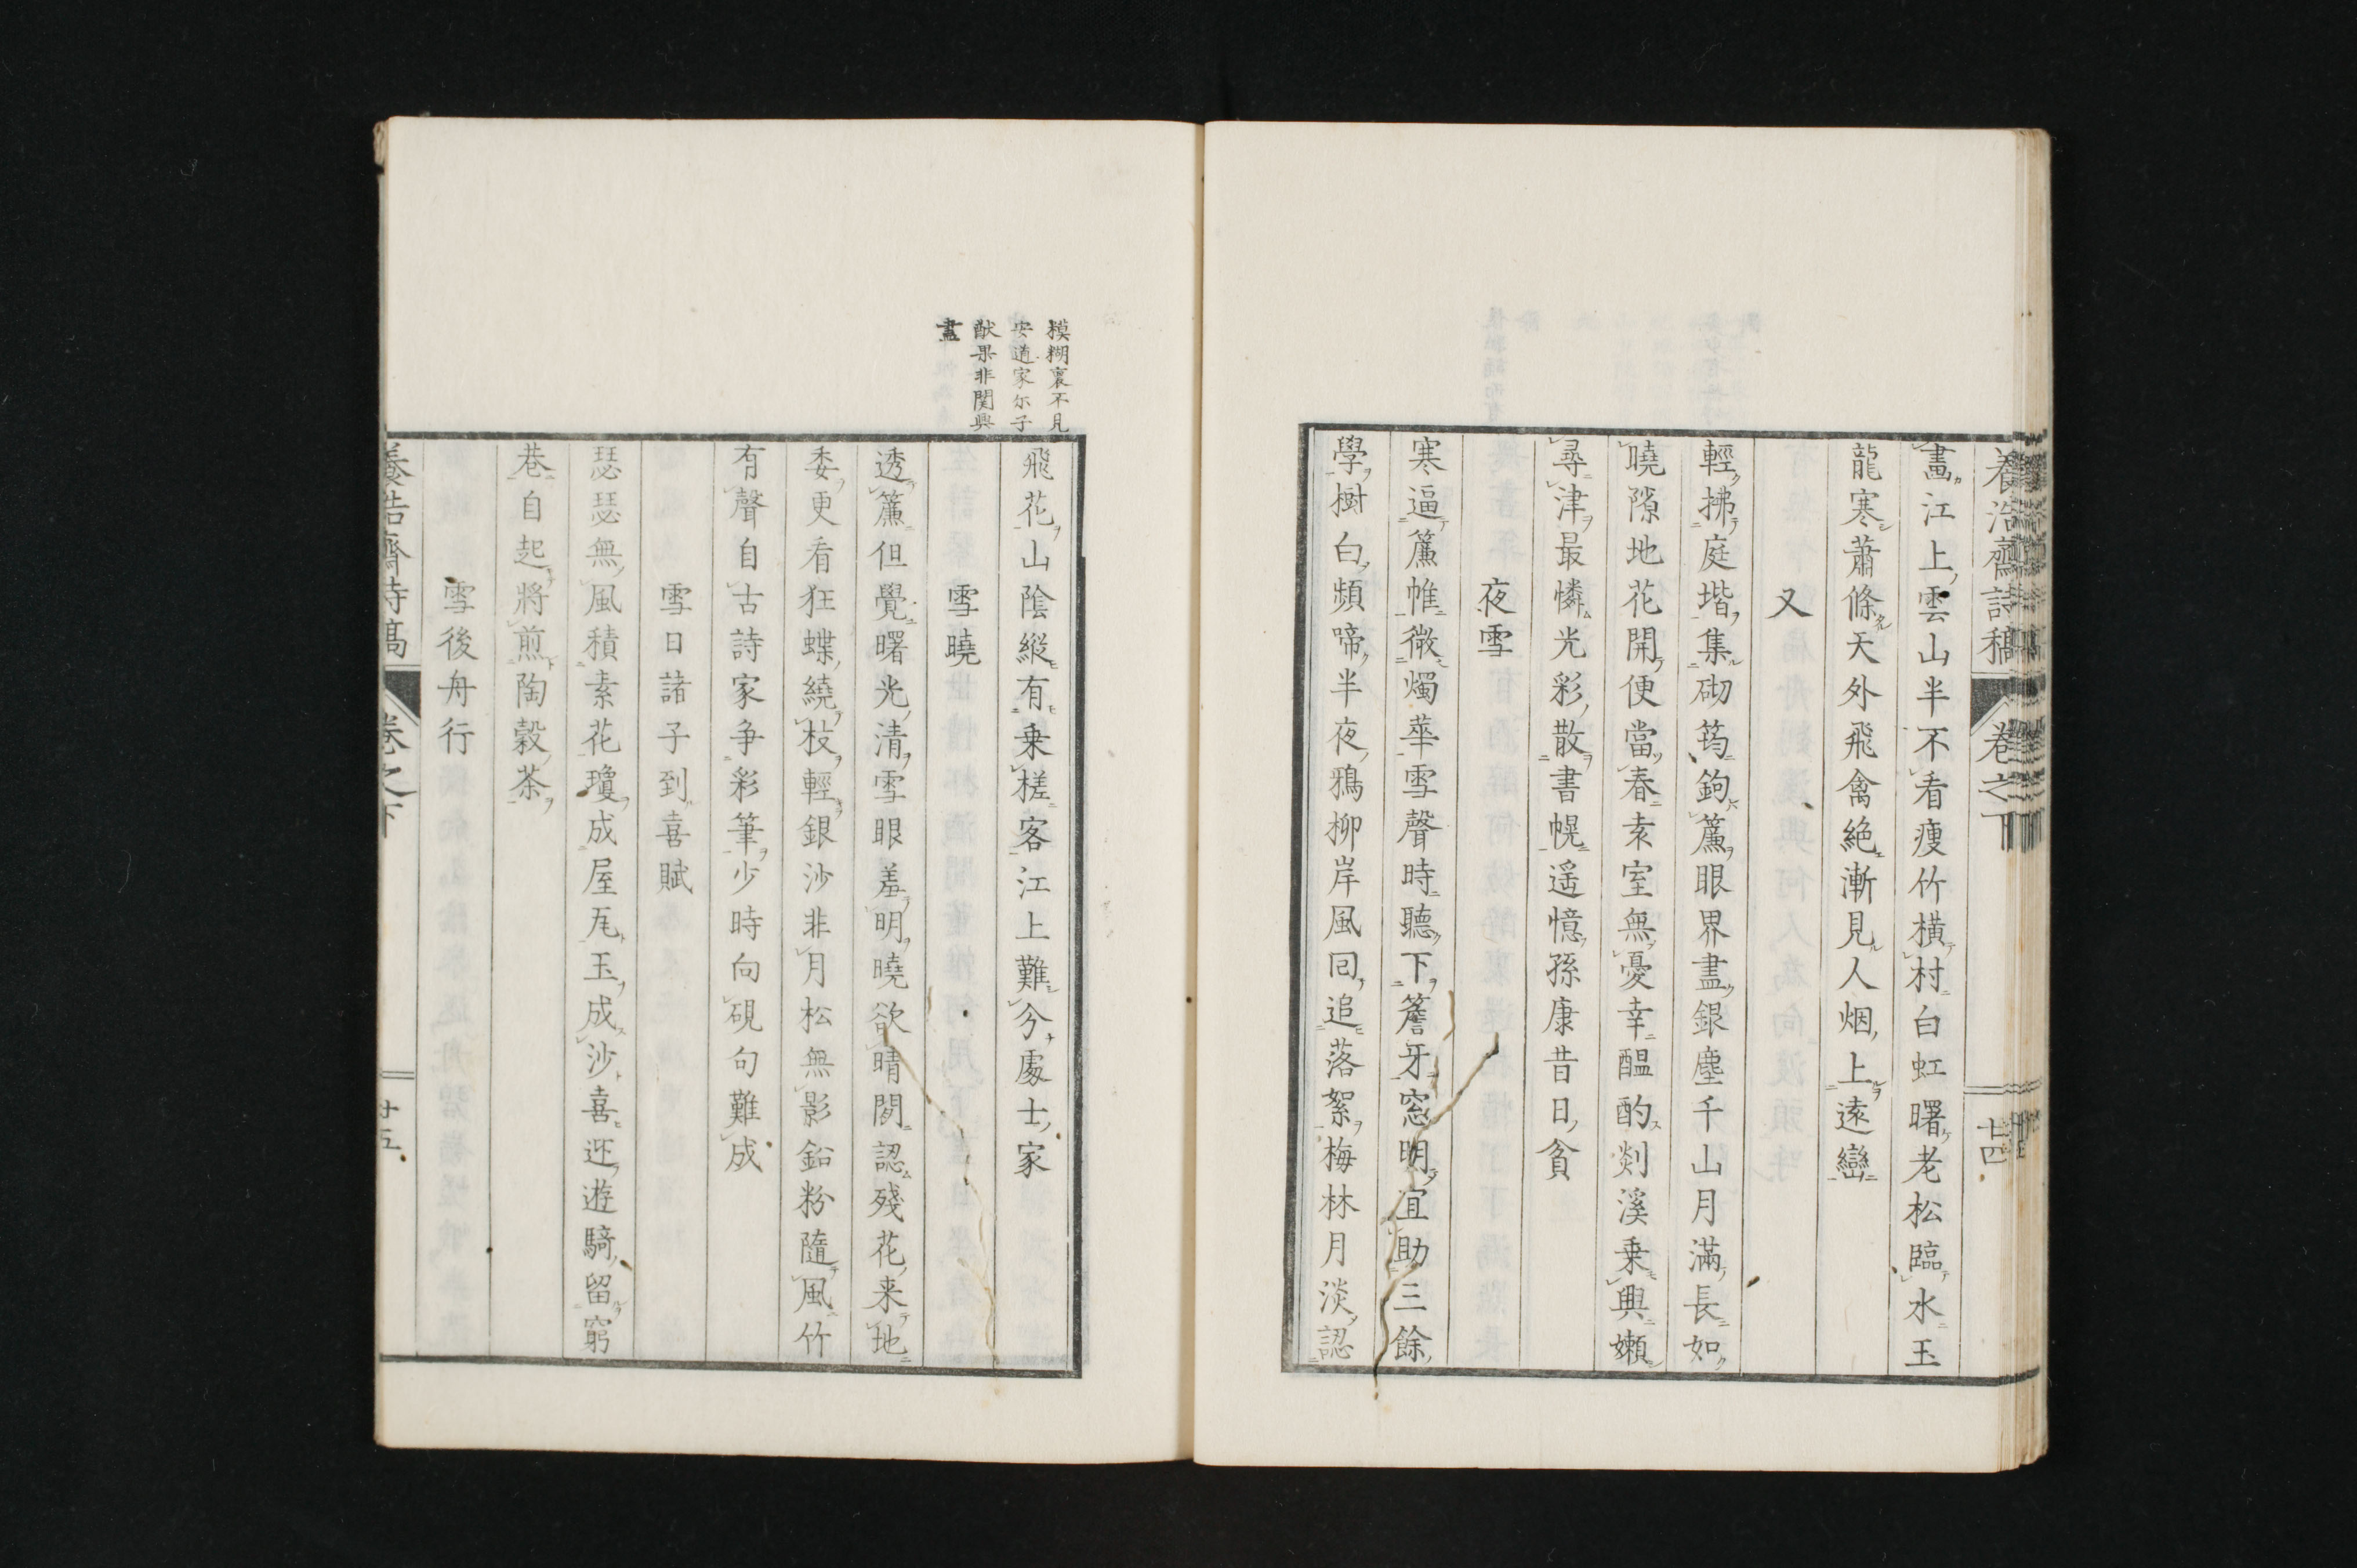 養浩齋詩稿 卷之下 廿四
畫江上雲山半不看瘦竹橫村白虹曙老松臨水玉
龍寒蕭條天外飛禽絶漸見人烟上遠巒
又
輕拂庭堦集砌筠鉤簾眼界盡銀塵千山月滿長如
曉隙地花開便當春素室無憂幸醞酌剡溪乗興嬾
尋津最憐光彩散書幌遥憶孫康昔日貧
夜雪
寒逼簾帷微燭華雪聲時聽下簷牙窓明宜助三餘
學樹白頻啼半夜鴉柳岸風回追落絮梅林月淡認
模糊裏不見
安道家尓子
猷果非関興
盡
飛花山陰縱有乗槎客江上難分處士家
雪曉
透簾但覺曙光清雪眼羞明曉欲晴閴認殘花来地
委更看狂蝶繞枝輕銀沙非月松無影鉛粉隨風竹
有聲自古詩家争彩筆少時向硯句難成
雪日諸子到喜賦
瑟瑟無風積素花瓊成屋瓦玉成沙喜迓遊騎留窮
巷自起將煎陶穀茶
雪後舟行
養浩齋詩稿 卷之下 廿五